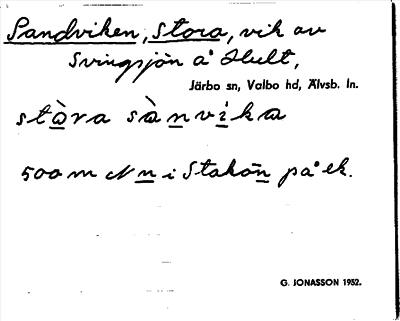 Sandviken, Stora, vik av
Svingsjön å Hult,
Järbo sn, Valbo hd, Älvsb. ln.
stòra sànvika
500 m N n i Stakön på ek.
G. JONASSON 1952.